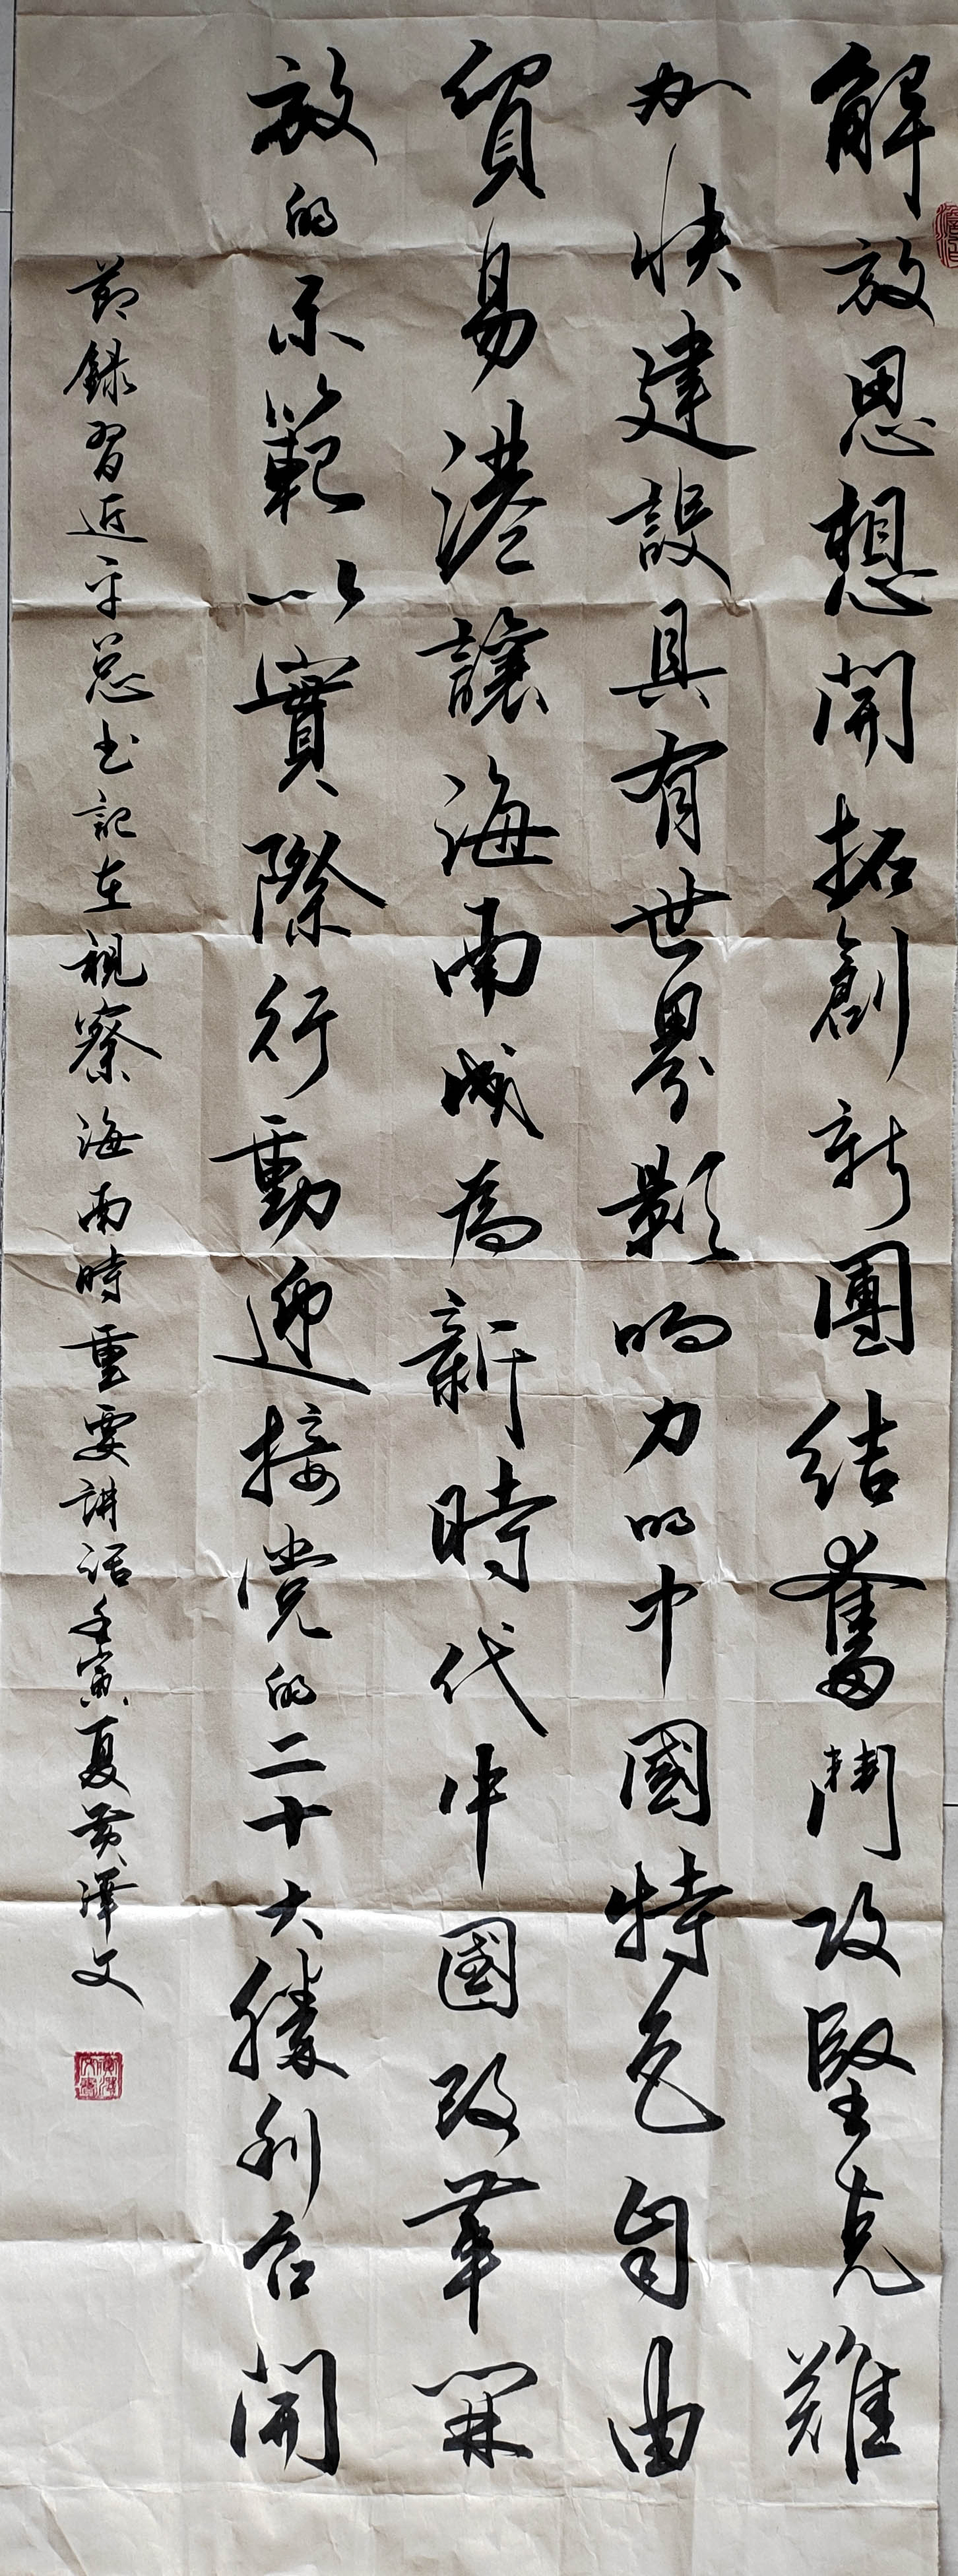 解放思想開拓創新團結奮鬥攻堅克難
加快建設具有世界影响力的中國特色自由
貿易港讓海南成為新時代中國改革開
放的示範以實際行動迎接党的二十大勝利召開
節録習近平总书記在視察海南時重要講話壬寅夏黄澤文